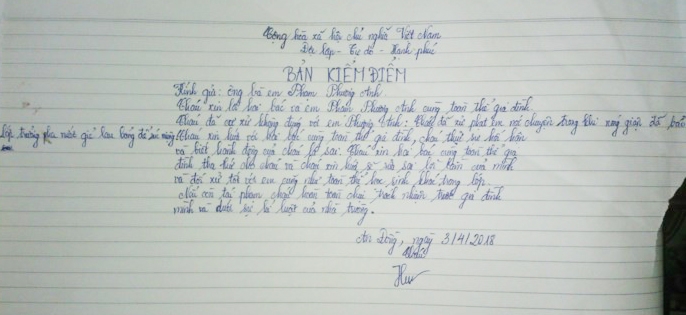 Cộng hòa xã hội chủ nghĩa Việt Nam
Độc lập - Tự do - Hạnh phúc
BẢN KIỂM ĐIỂM
Kính gửi: ông bà em Phạm Phương Anh
Cháu xin lỗi hai bác và em Phạm Phương Anh cùng toàn thể gia đình.
Cháu đã cư xử không đúng với em Phương Anh: Cháu đã xử phạt em nói chuyện trong khi
lớp trưởng nước giẻ lau bảng
Cháu xin hứa với hai bác cùng toàn thể gia đình, cháu thật sự hối hận
và biết hành động của cháu là sai. Cháu xin hai bác cùng toàn thể gia
đình tha thứ cho cháu và cháu xin hứa sẽ sửa sai lỗi lầm của mình
và đối xử tốt với em cũng như toàn thể học sinh khác trong lớp.
Nếu còn tái phạm cháu hoàn toàn chịu trách nhiệm trước gia đình
mình và dưới sự kỉ luật của nhà trường.
An Đồng, ngày 3/4/2018
Cháu